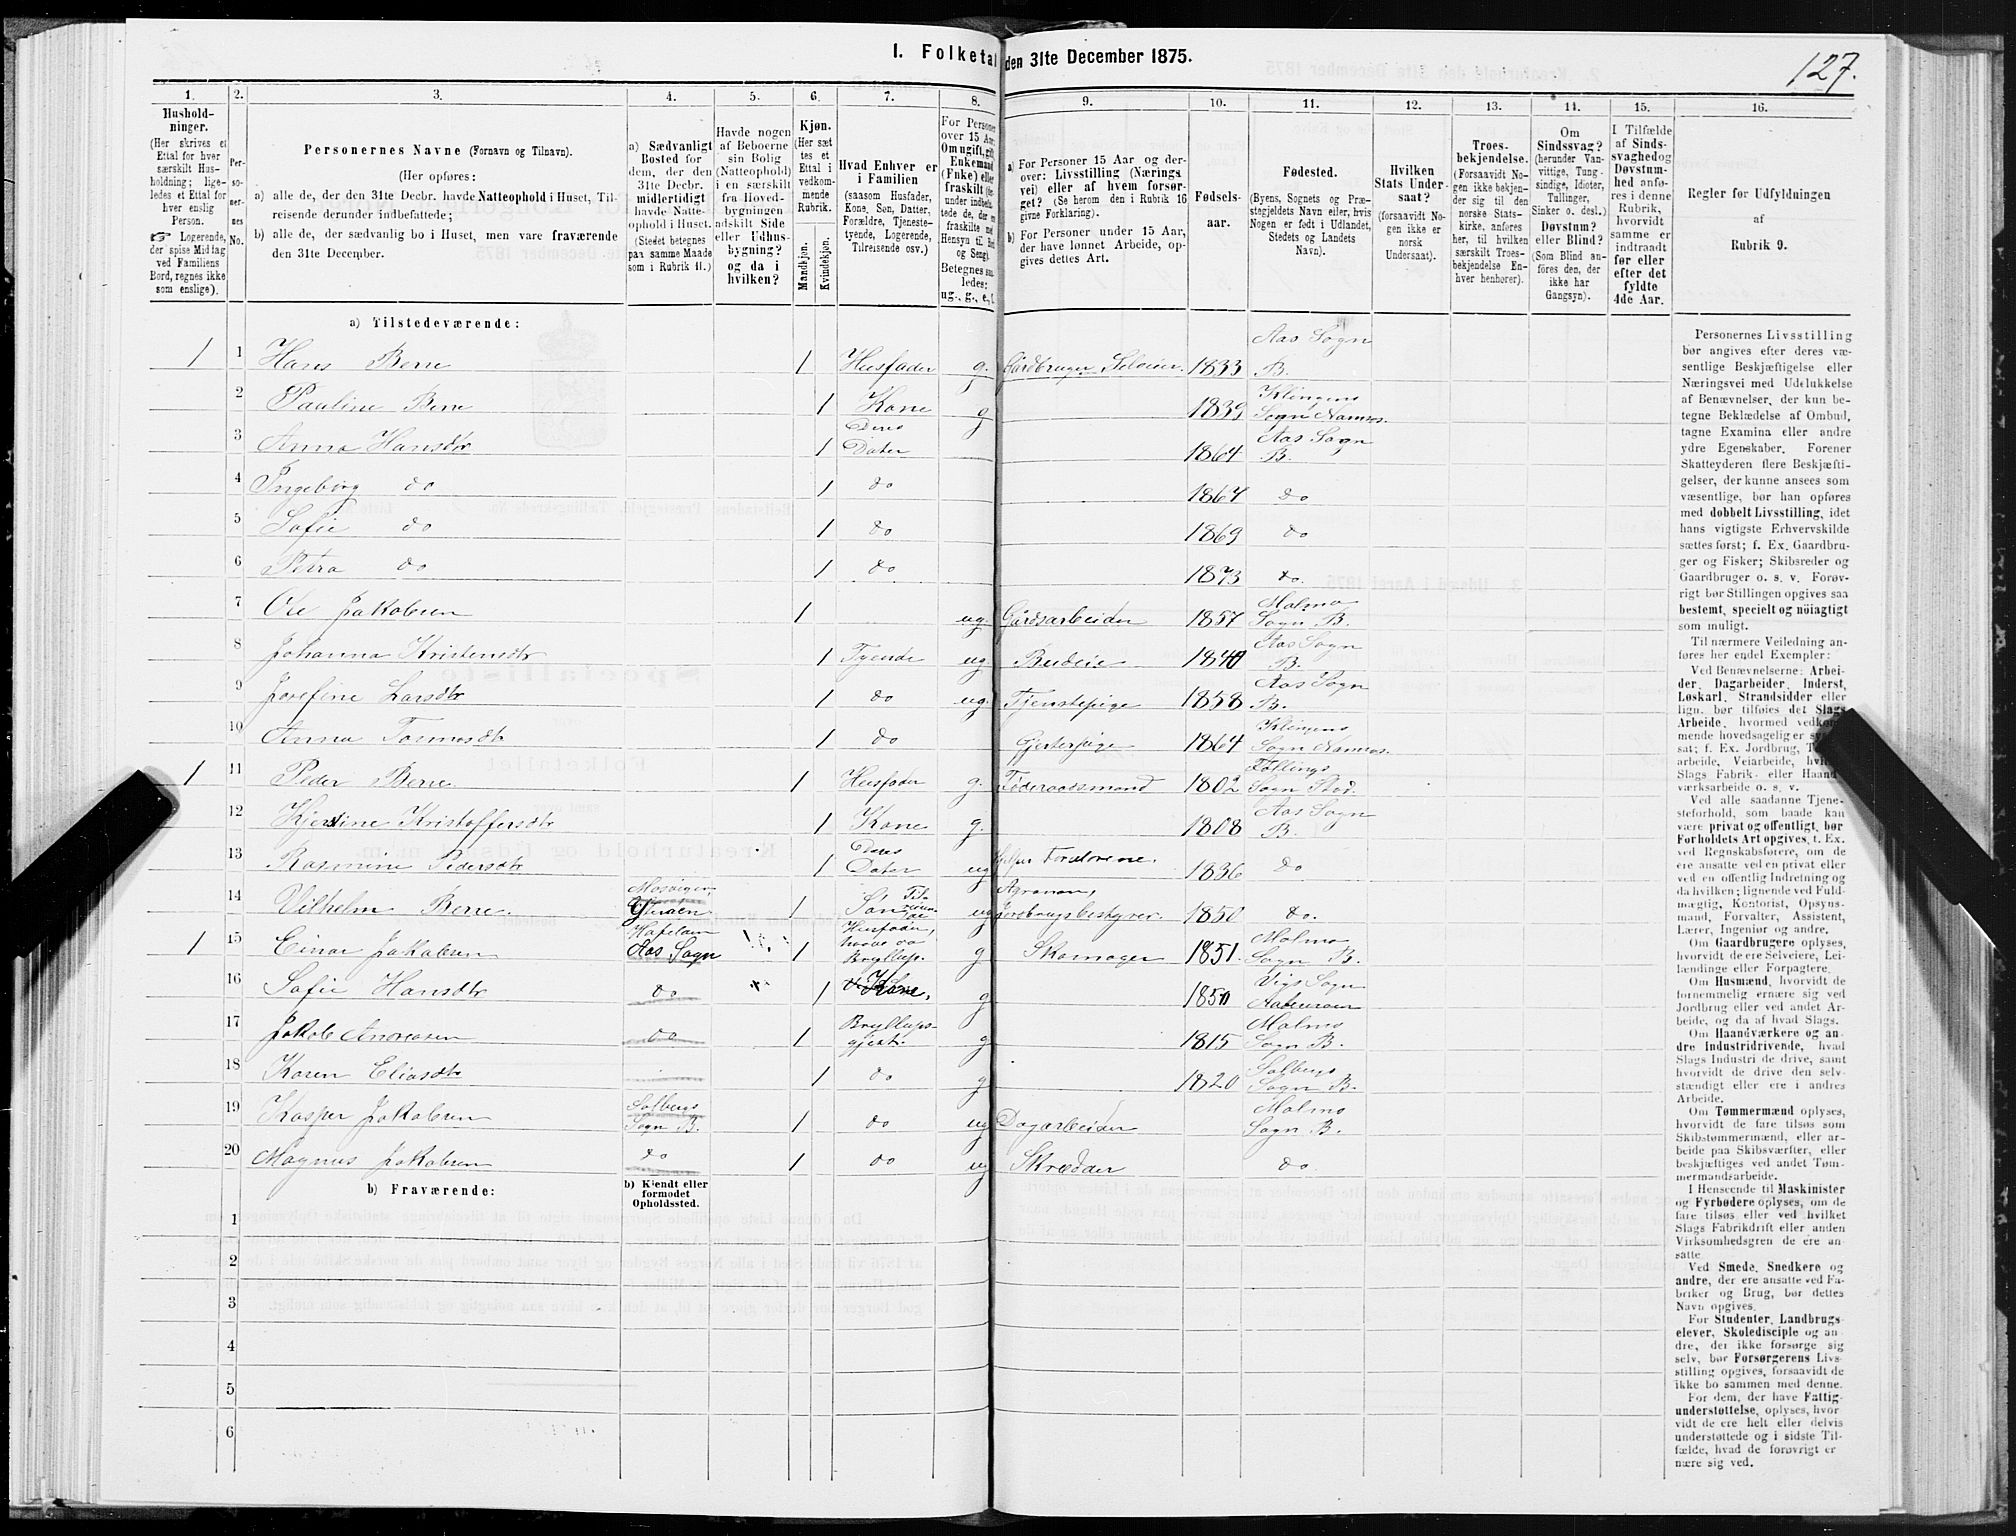 127.
I. Folketal den 31te December 1875.
1. 2. 3. 4. 5. 6. 7. 8. 9. 10. 11. 12. 13. 14. 15. 16.
Hushold-
ninger.
(Her skrives et
Ettal for hver
særskilt Hus-
holdning; lige-
ledes et Ettal for
hver enslig
Person.
☞ Logerende,
der spise Middag
ved Familiens
Bord, regnes ikke
som enslige).
Per-
so-
ner-
nes
No.
Personernes Navne (Fornavn og Tilnavn).
(Her opføres:
a) alle de, der den 31te Decbr. havde Natteophold i Huset, Til-
reisende derunder indbefattede;
b) alle de, der sædvanlig bo i Huset, men vare fraværende
den 31te December.
a) Sædvanligt
Bosted for
dem, der den
31te Decbr.
midlertidigt
havde Natte-
ophold i Huset.
(Stedet betegnes
paa samme Maade
som i Rubrik 11.)
Havde nogen
af Beboerne
sin Bolig
(Natteophold)
i en særskilt
fra Hoved-
bygningen
adskilt Side
eller Udhus-
bygning?
og da i
hvilken?
Kjøn.
(Her sæt-
tes et
Ettal i
vedkom-
mende
Rubrik.
Mandkjøn.
Kvindekjøn.
Hvad Enhver er
i Familien
(saasom Husfader,
Kone, Søn, Datter,
Forældre, Tjeneste-
tyende, Logerende,
Tilreisende osv.)
For Personer
over 15 Aar:
Om ugift, gift,
Enkemand
(Enke) eller
fraskilt
Betegnes saa-
ledes:
ug., g., e., f.
a) For Personer 15 Aar og der-
over: Livsstilling (Nærings-
vei) eller af hvem forsør-
get? (Se herom den i Rubrik 16
givne Forklaring).
b) For Personer under 15 Aar,
der have lønnet Arbeide, op-
gives dettes Art.
Fødsels-
aar.
Fødested.
(Byens, Sognets og Præ-
stegjeldets Navn eller, hvis
Nogen er født i Udlandet,
Stedets og Landets
Navn).
Hvilken
Stats Under-
saat?
(forsaavidt No-
gen ikke er
norsk
Undersaat).
Troes-
bekjendelse.
(Forsaavidt No-
gen ikke bekjen-
der sig til den
norske Stats-
kirke, anføres
her, til hvilken
særskilt Troes-
bekjendelse En-
hver henhører).
Om
Sindssvag?
(herunder Van-
vittige, Tung-
sindige, Idioter,
Tullinger,
Sinker o. desl.)
Døvstum?
eller Blind?
(Som Blind an-
føres den, der
ikke har
Gangsyn).
I Tilfælde
af Sinds-
svaghed og
Døvstum-
hed anfø-
res i denne
Rubrik,
hvorvidt
samme er
indtraadt
før eller
efter det
fyldte
4de Aar.
Regler for Udfyldningen
af
Rubrik 9.
a) Tilstedeværende:
1 1 Hans Berre 1 Husfader g. Gårdbruger Seleier. 1833 Aas Sogn B.
2 Pauline Berre 1 Kone g 1839 Klingens Sogn Namsos.
3 Anna Hansdtr 1 Deres Dater 1864 Aas Sogn B.
4 Ingeborg do 1 do 1867 do
5 Sofie do 1 do 1869 do
6 Petra do 1 do 1873 do.
7 Ole Jakobsen 1 ug. Gårdsarbeider 1857 Malmo Sogn B.
8 Johanna Kristensdtr 1 Tyende ug Budeie 1840 Aas Sogn B.
9 Josefine Larsdtr 1 do ug. Tjenstepige 1858 Aas Sogn B.
10 Anna Tomasdtr 1 do Gjeterpige 1864 Klingens Sogn Namsos.
1 11 Peder Berre 1 Husfader g. Føderaadsmand 1802 Følings Sogn Stod.
12 Kjerstine Kristoffersdtr 1 Kone g. 1808 Aas Sogn B.
13 Rasmine Pedersdtr 1 Deres Dater ug Hjelper Foreldrene. 1836 do
14 Vilhelm Berre. 1 Søn ug Agronom, Jordbrugsbestyrer. 1850 do.
1 15 Einar Jakobsen Aas Sogn 1 Husfader, Bryllup. g Skomager 1851. Malmo Sogn B.
16 Sofie Hansdtr do 1 Kone, g 1850 Vigs Sogn
17 Jakob Andreasen do 1 Bryllups-gjest. g 1815 Malmo Sogn B.
18 Karen Eliasdtr 1 do g 1820 Solbergs Sogn B.
19 Kasper Jakobsen Solbergs Sogn B. 1 do ug Dagarbeider Malmo Sogn B.
20 Magnus Jakobsen do 1 do ug Skrædder do.
b) Fraværende: b) Kjendt eller
formodet
Opholdssted.
1
2
3
4
5
6
Personernes Livsstilling
bør angives efter deres væ-
sentlige Beskjæftigelse eller
Næringsvei med Udelukkelse
af Benævnelser, der kun be-
tegne Beklædelse af Ombud,
tagne Examina eller andre
ydre Egenskaber. Forener
Skatteyderen flere Beskjæfti-
gelser, der kunne ansees som
væsentlige, bør han opføres
med dobbelt Livsstilling, idet
hans vigtigste Erhvervskilde
sættes først; f. Ex. Gaardbru-
ger og Fisker; Skibsreder og
Gaardbruger o. s. v. Forøv-
rigt bør Stillingen opgives saa
bestemt, specielt og nöiagtigt
som muligt.
Til nærmere Veiledning an-
føres her endel Exempler:
Ved Benævnelserne: Arbei-
der, Dagarbeider, Inderst,
Løskarl, Strandsidder eller
lign. bør tilføies det Slags
Arbeide, hvormed vedkom-
mende hovedsagelig er
sat; f. Ex. Jordbrug,
arbeide, Veiarbeide,
Slags Fabrik- eller
værksarbeide o. s. v.
Ved alle saadanne Tjene-
steforhold, som baade kan
være privat og offentligt, bør
Forholdets Art opgives, f. Ex.
ved Regnskabsførere, om de
ere ansatte ved en privat eller
ved en offentlig Indretning og
da hvilken; lignende ved Fuld-
mægtig, Kontorist, Opsyns-
mand, Forvalter, Assistent,
Lærer, Ingeniør og andre.
Om Gaardbrugere oplyses,
hvorvidt de ere Selveiere, Lei-
lændinge eller Forpagtere.
Om Husmænd, hvorvidt de
fornemmelig ernære sig ved
Jordbrug eller ved andet Ar-
beide, og da af hvad Slags.
Om Haandværkere og an-
dre Industridrivende, hvad
Slags Industri de drive, samt
hvorvidt de drive den selv-
stændigt eller ere i andres
Arbeide.
Om Tømmermænd oplyses,
hvorvidt de fare tilsøs som
Skibstømmermænd, eller ar-
beide paa Skibsværfter, eller
beskjæftiges ved andet Tøm-
mermandsarbeide.
I Henseende til Maskinister
og Fyrbødere oplyses, om de
fare tilsøs eller ved hvilket
Slags Fabrikdrift eller anden
Virksomhedsgren de ere an-
satte.
Ved Smede, Snedkere og
andre, der ere ansatte ved Fa-
briker og Brug, bør dettes
Navn opgives.
For Studenter, Landbrugs-
elever, Skoledisciple og an-
dre, der ikke forsørge sig
selv, bør Forsørgerens Livs-
stilling opgives, forsaavidt de
ikke bo sammen med denne.
For dem, der have Fattig-
understøttelse, oplyses, hvor-
vidt de ere helt eller delvis
understøttede og i sidste Til-
fælde, hvad de forøvrigt er-
nære sig ved.